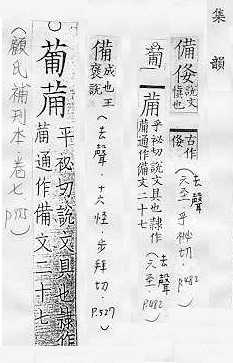 集韻
備俻說文慎也
古作俻
(去聲六至平祕切.p.482)
𤰇 𤰈 平祕切說文具也隸作𤰈通作備文二十七
(去聲六至.p.482)
備 成也王褒說
(去聲.十六怪.步拜切.p.527)
𤰇 𤰈 平祕切說文具也隸作
𤰈通作備文二十七
(顧氏補刊本卷七